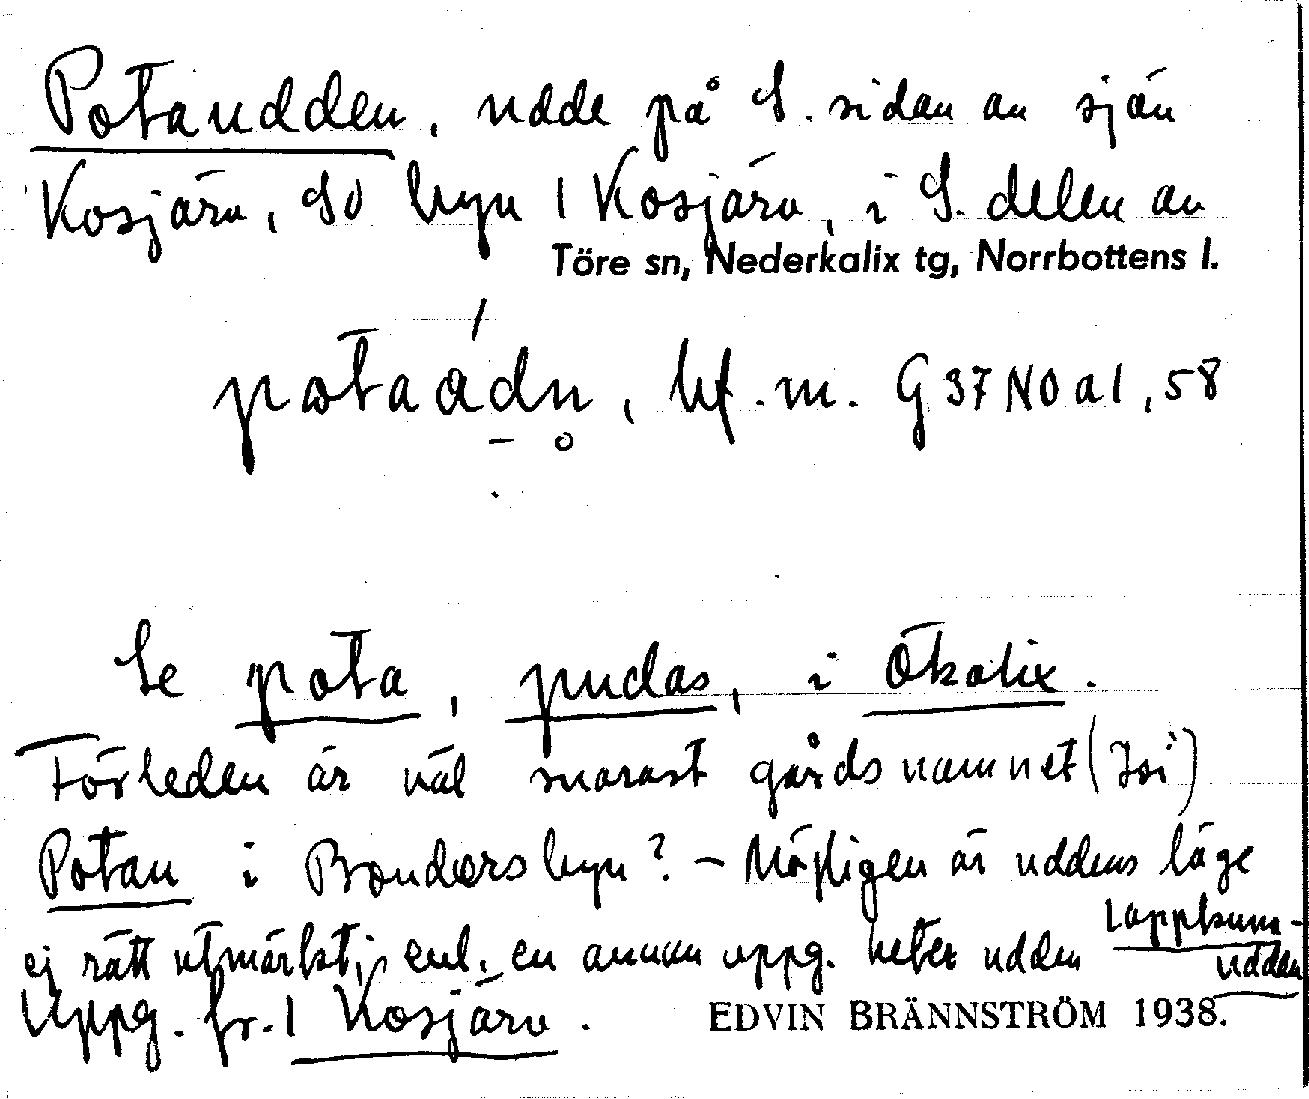 Potaudden, udde på S. sidan av sjön
Kosjärv, SO byn 1 Kosjärv, i S. delen av
Töre sn, Nederkalix tg, Norrbottens l.
potaádn, bf. m. G 37 NO a 1, 58
Se pota, pudas, i Ökalix.
Förleden är väl snarast gårdsnamnet
Potan i Bondersbyn? – Möjligen är uddens läge
ej rätt utmärkt; enl. en annan uppg. heter udden Lappkum-
udden
Uppg. fr. 1 Kosjärv. EDVIN BRÄNNSTRÖM 1938.